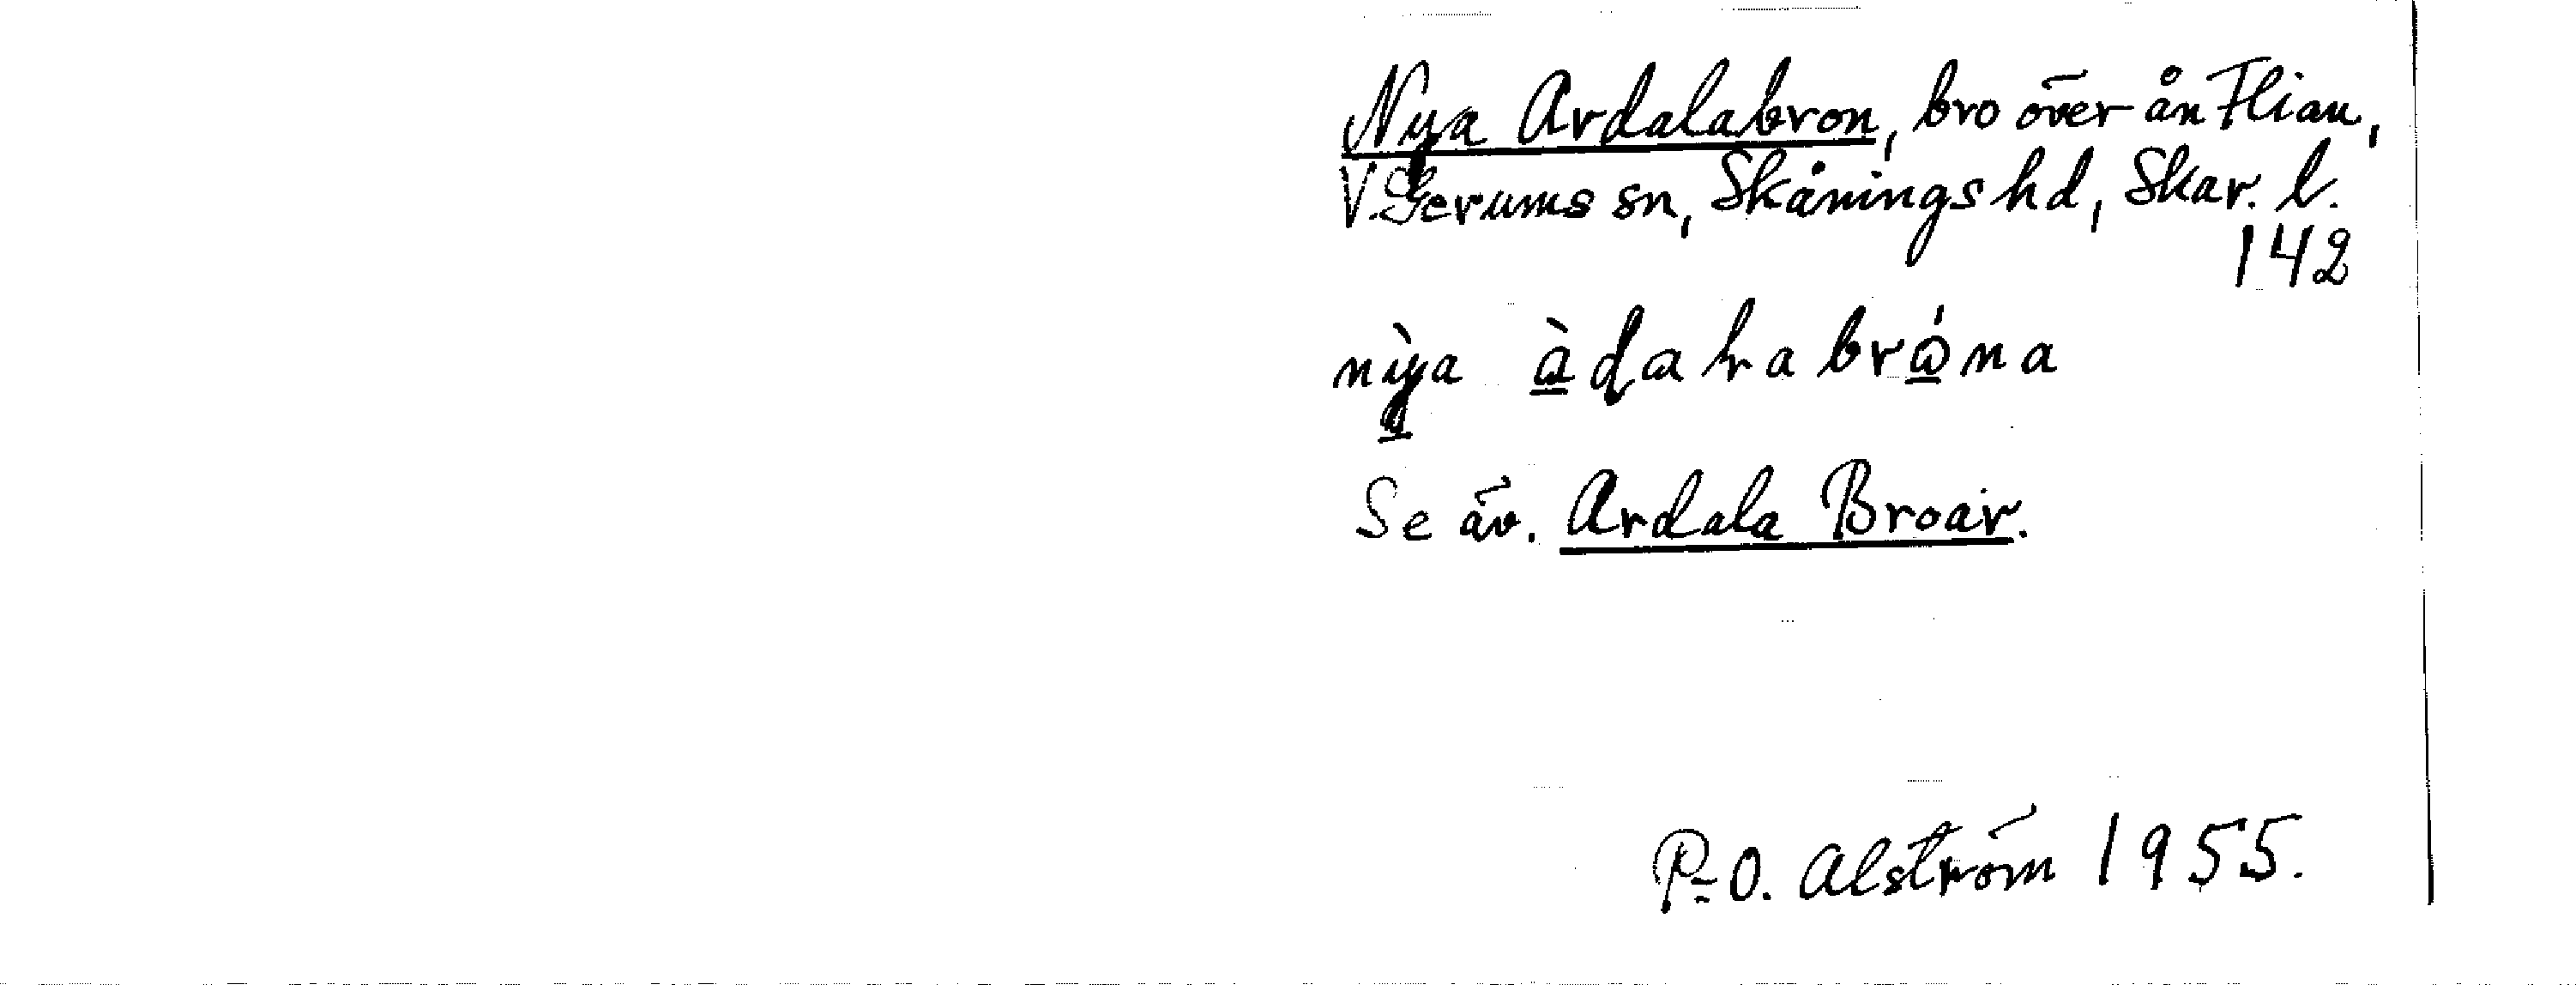 Nya Ardalabron, bro över ån Flian,
V. Gerums sn, Skånings hd, Skar. l.
142
nỳya àḍahabrǿna
Se äv. Ardala Broar.
P-O. Alström 1955.